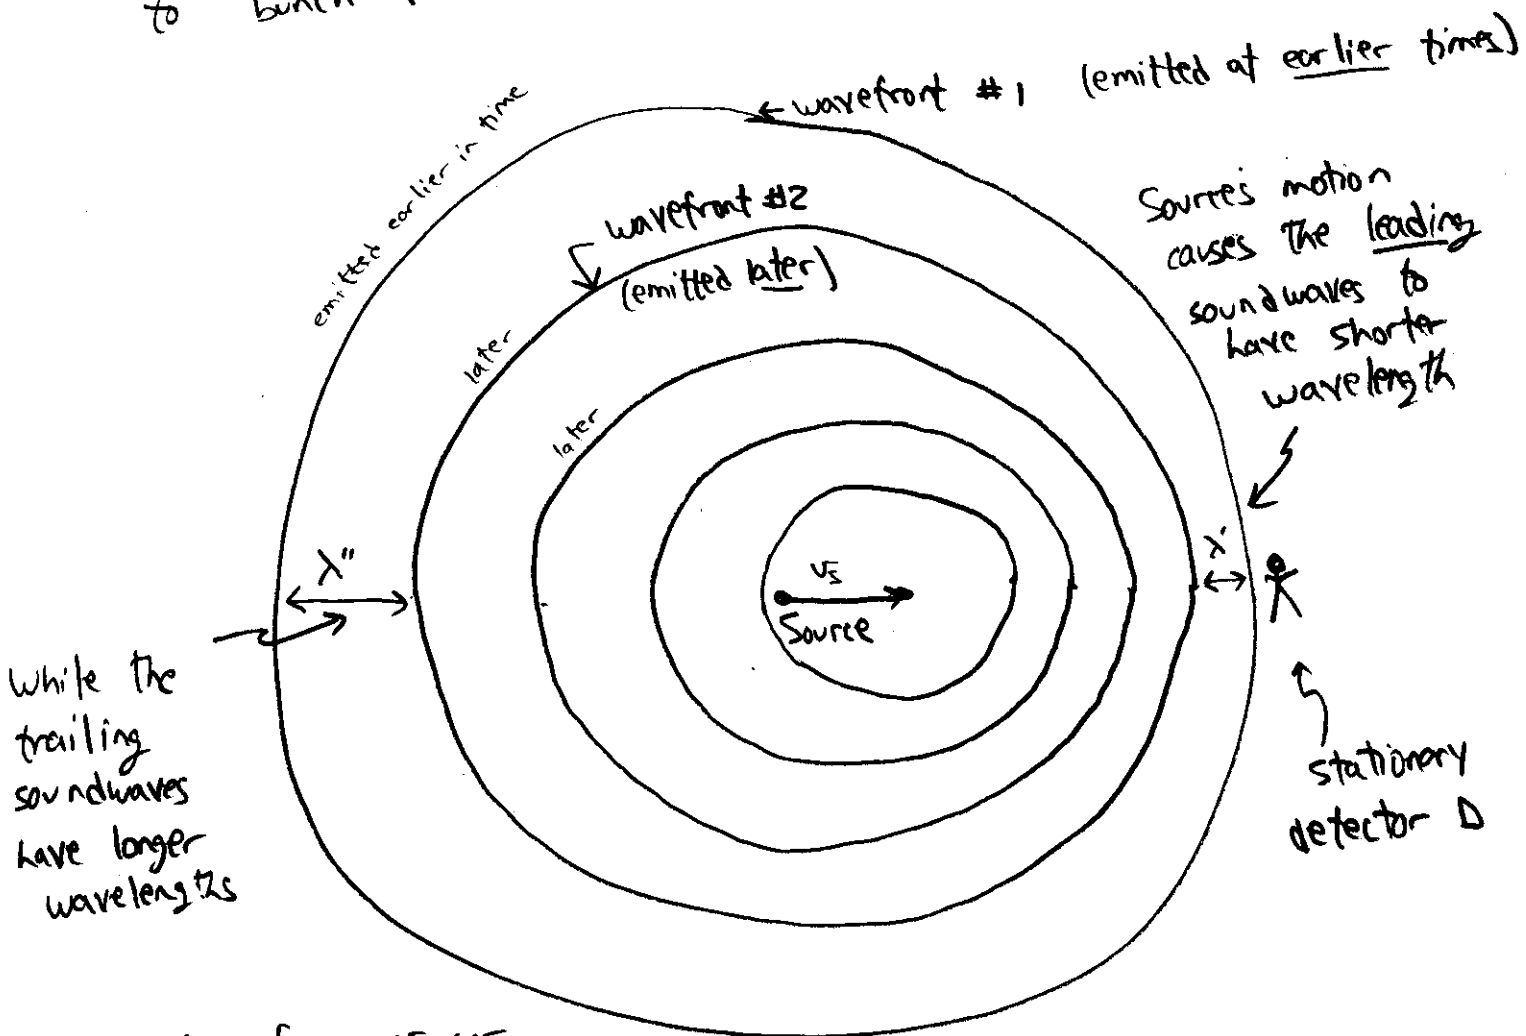 to bunch
← wavefront #1 (emitted at earlier times)
emitted earlier in time
wavefront #2
(emitted later)
later
later
Source's motion
causes the leading
soundwaves to
have shorter
wavelength
λ"
λ'
vs
Source
While the
trailing
soundwaves
have longer
wavelengths
stationary
detector D